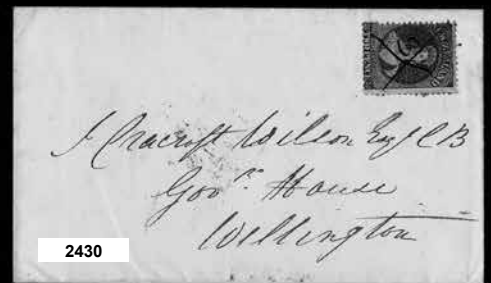 J Cracroft Wilson Esqr CB
Govr. House
Wellington
2430